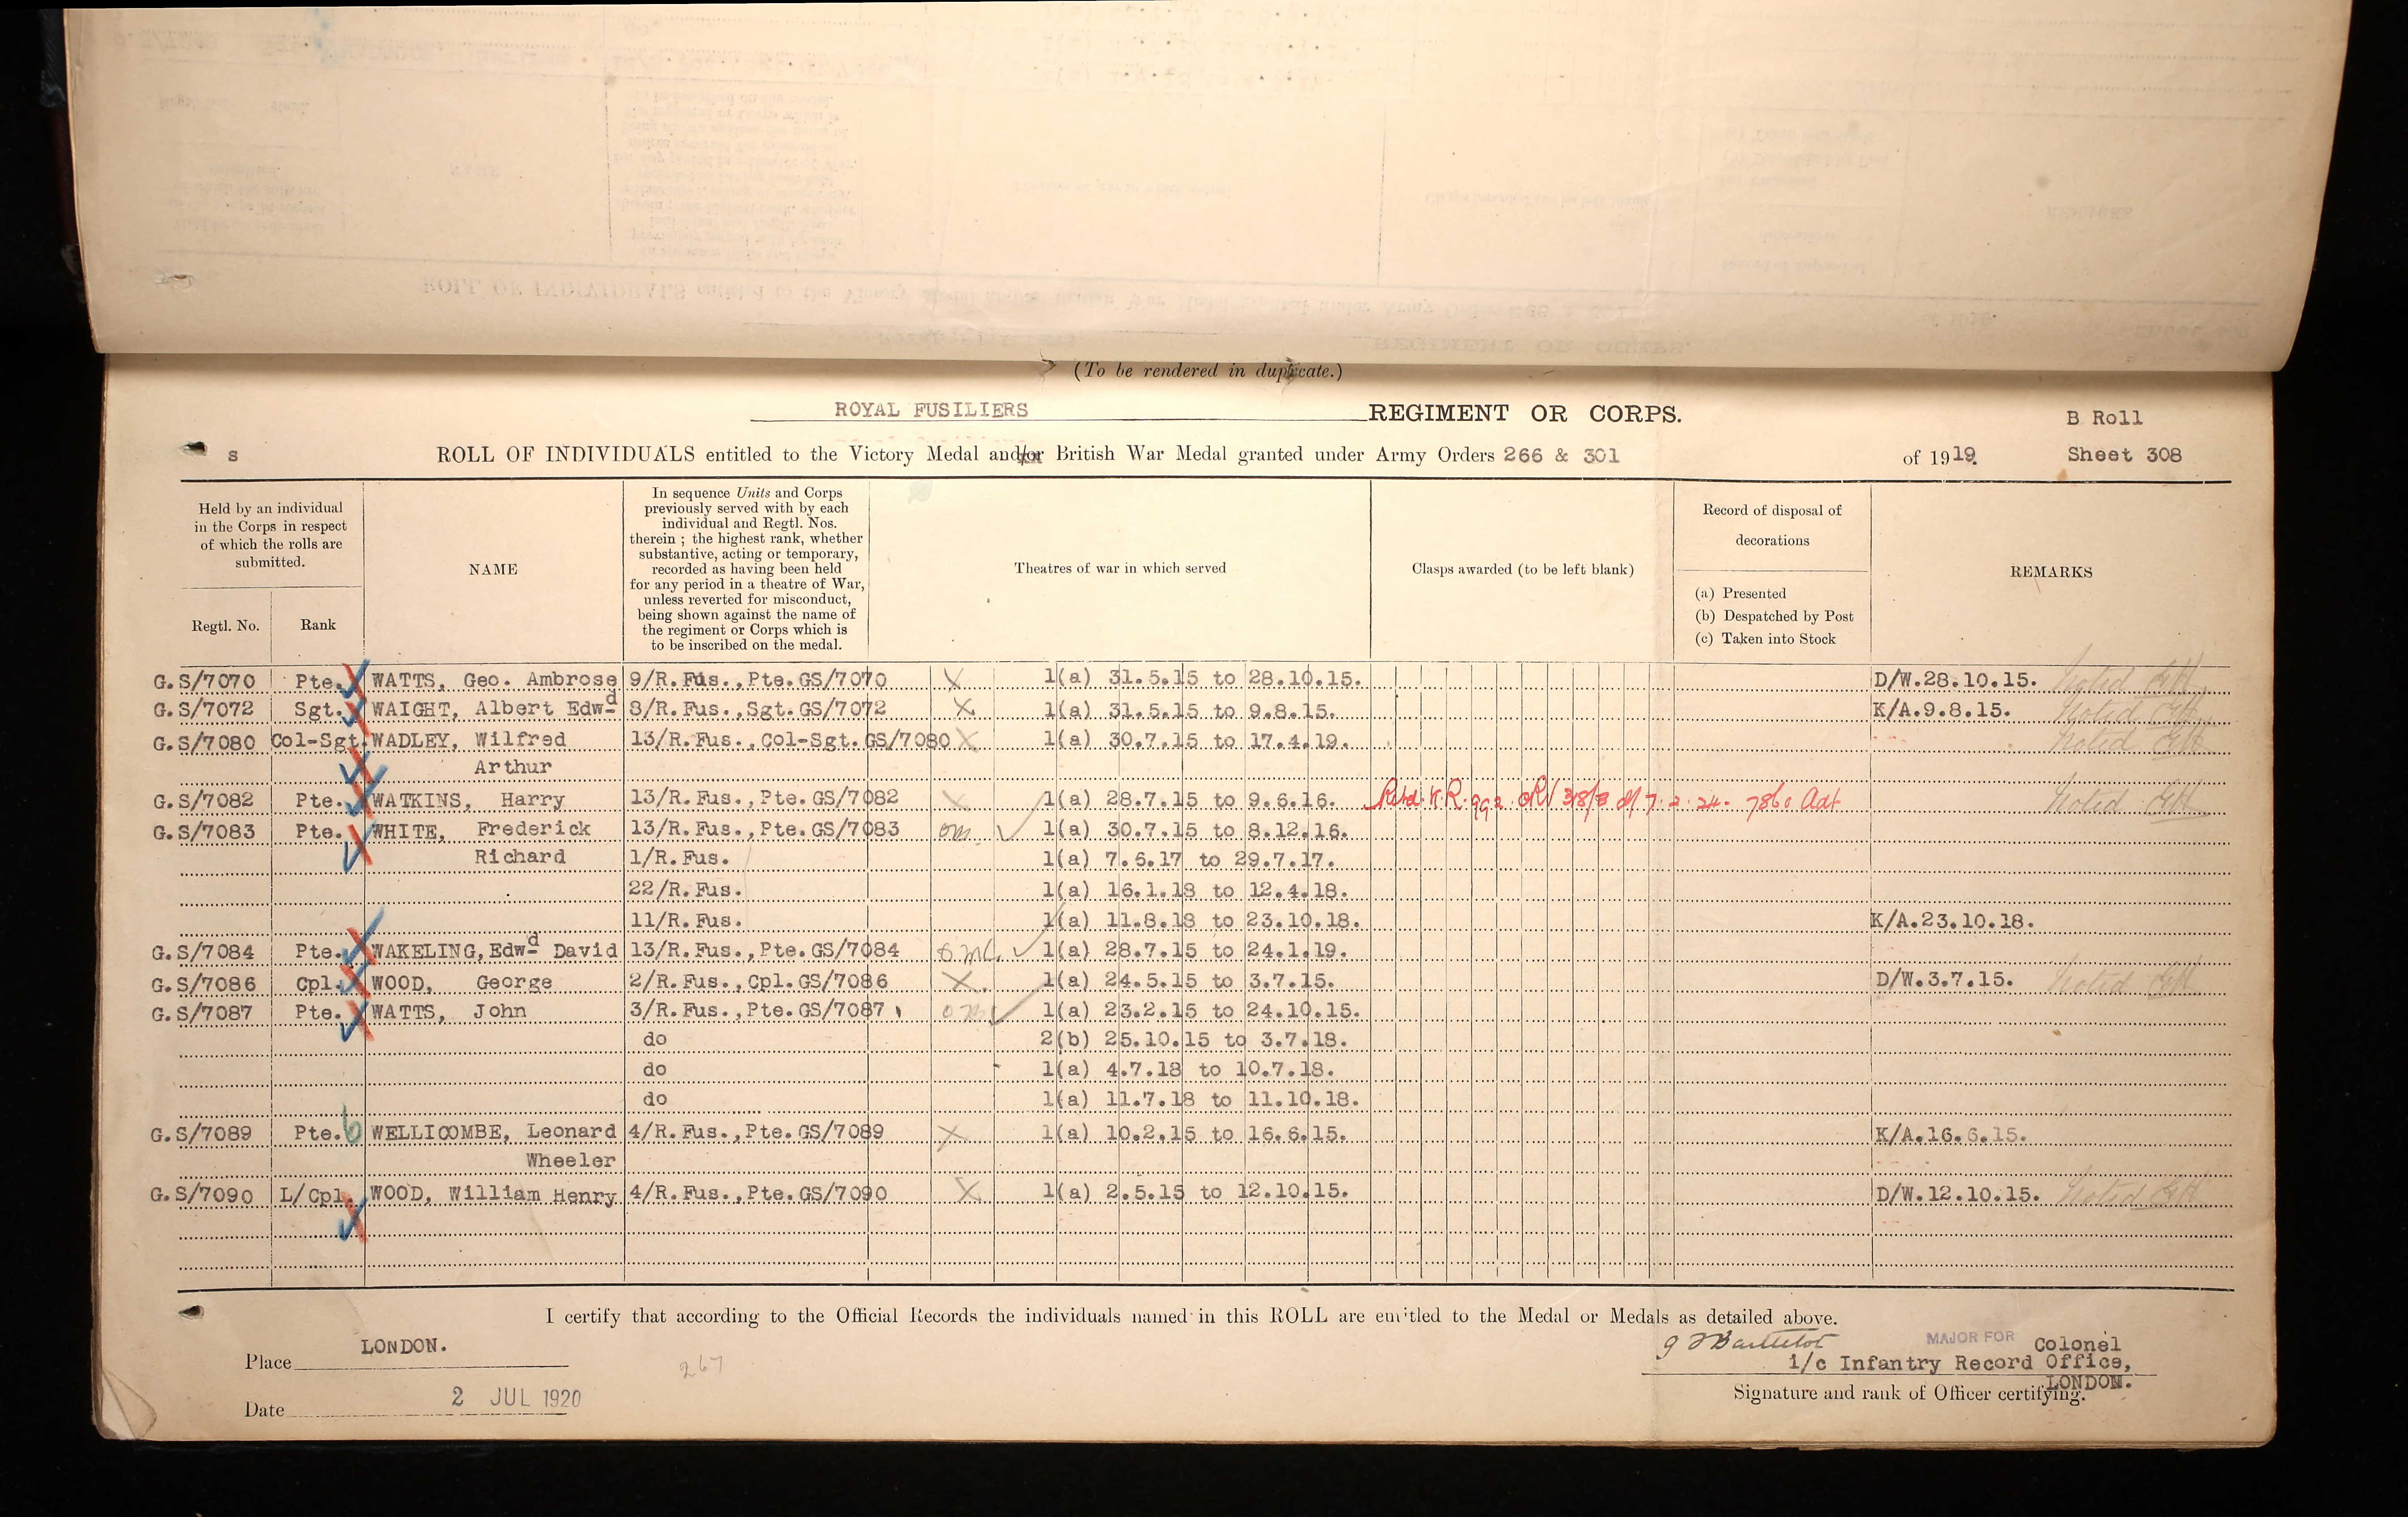 (To be rendered in duplicate.)
ROYAL FUSILIERS REGIMENT OR CORPS.
B Roll
S ROLL OF INDIVIDUALS entitled to the Victory Medal and/or British War Medal granted under Army Orders 266 & 301 of 1919. Sheet 308
Held by an individual
in the Corps in respect
of which the rolls are
submitted.
Regtl. No. Rank
NAME
In sequence Units and Corps
previously served with by each
individual and Regtl. Nos.
therein ; the highest rank, whether
substantive, acting or temporary,
recorded as having been held
for any period in a theatre of War,
unless reverted for misconduct,
being shown against the name of
the regiment or Corps which is
to be inscribed on the medal.
Theatres of war in which served
Clasps awarded (to be left blank)
Record of disposal of
decorations
(a) Presented
(b) Despatched by Post
(c) Taken into Stock
REMARKS
G.S/7070 Pte. WATTS, Geo. Ambrose 9/R.Fus.,Pte.GS/7070 X 1(a) 31.5.15 to 28.10.15. D/W.28.10.15. Noted
G.S/7072 Sgt. WAIGHT, Albert Edwd 8/R.Fus.,Sgt.GS/7072 X 1(a) 31.5.15 to 9.8.15. K/A.9.8.15. Noted
G.S/7080 Col-Sgt. WADLEY, Wilfred 13/R.Fus.,Col-Sgt.GS/7080 X 1(a) 30.7.15 to 17.4.19. Noted
Arthur
G.S/7082 Pte. WATKINS, Harry 13/R.Fus.,Pte.GS/7082 X 1(a) 28.7.15 to 9.6.16. Retd. K.R. 992. 7.2.24. 7860 Adt Noted
G.S/7083 Pte. WHITE, Frederick 13/R.Fus.,Pte.GS/7083 om. 1(a) 30.7.15 to 8.12.16.
Richard 1/R.Fus. 1(a) 7.6.17 to 29.7.17.
22/R.Fus. 1(a) 16.1.18 to 12.4.18.
11/R.Fus. 1(a) 11.8.18 to 23.10.18. K/A.23.10.18.
G.S/7084 Pte. WAKELING, Edwd David 13/R.Fus.,Pte.GS/7084 1(a) 28.7.15 to 24.1.19.
G.S/7086 Cpl. WOOD, George 2/R.Fus.,Cpl.GS/7086 X. 1(a) 24.5.15 to 3.7.15. D/W.3.7.15. Noted
G.S/7087 Pte. WATTS, John 3/R.Fus.,Pte.GS/7087 om 1(a) 23.2.15 to 24.10.15.
do 2(b) 25.10.15 to 3.7.18.
do 1(a) 4.7.18 to 10.7.18.
do 1(a) 11.7.18 to 11.10.18.
G.S/7089 Pte. 6 WELLICOMBE, Leonard 4/R.Fus.,Pte.GS/7089 X 1(a) 10.2.15 to 16.6.15. K/A.16.6.15.
Wheeler
G.S/7090 L/Cpl. WOOD, William Henry 4/R.Fus.,Pte.GS/7090 X 1(a) 2.5.15 to 12.10.15. D/W.12.10.15. Noted
I certify that according to the Official Records the individuals named in this ROLL are entitled to the Medal or Medals as detailed above.
Place LONDON.
267
MAJOR FOR Colonel
i/c Infantry Record Office,
LONDON.
Signature and rank of Officer certifying.
Date 2 JUL 1920